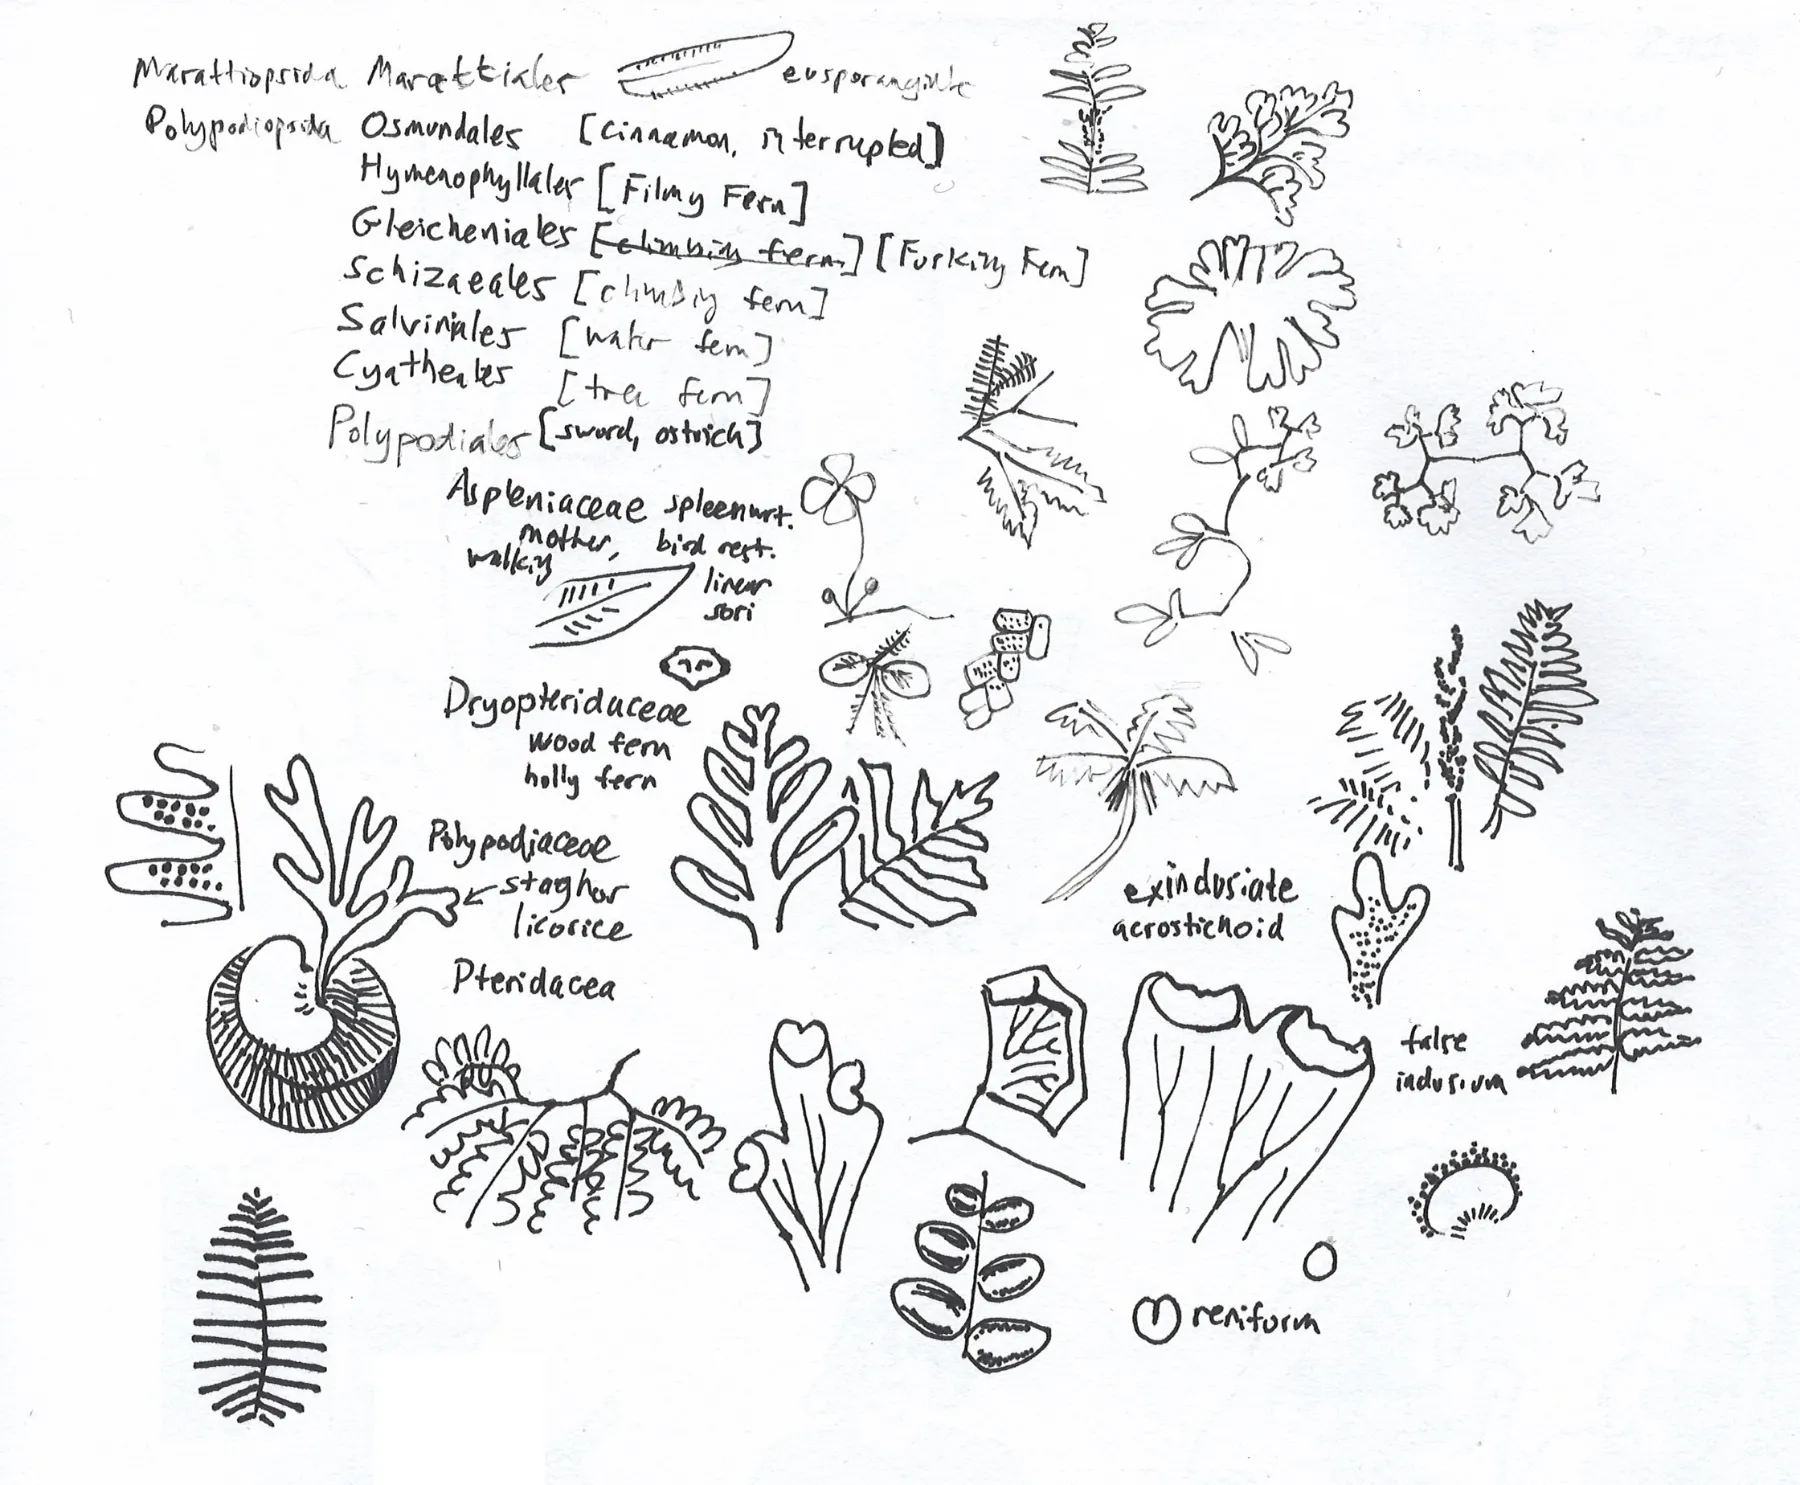 Marattiopsida Marattiales eusporangiate
Polypodiopsida Osmundales [cinnamon, interrupted]
Hymenophyllales [Filmy Fern]
Gleicheniales [climbing fern] [Forking Fern]
Schizaeales [climbing fern]
Salviniales [water fern]
Cyatheales [tree fern]
Polypodiales [sword, ostrich]
Aspleniaceae spleenwrt.
mother, bird nest.
walking
linear
sori
Dryopteridaceae
wood fern
holly fern
Polypodiaceae
staghor
licorice
Pteridacea
exindusiate
acrostichoid
false
indusium
reniform